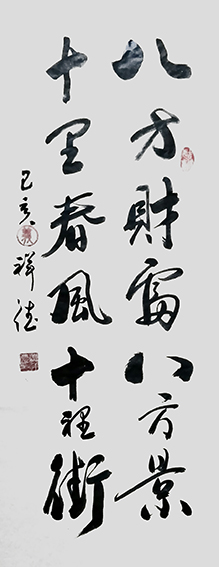 八方財富八方景
十里春風十裡街
己亥 祥德